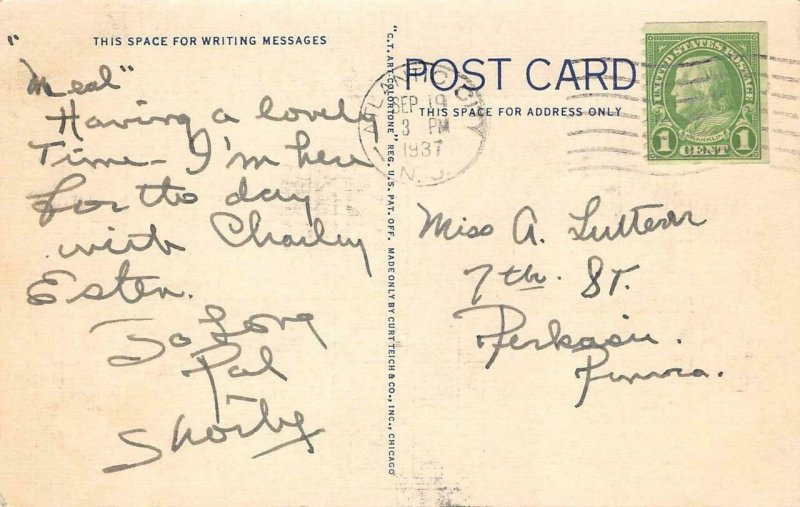 THIS SPACE FOR WRITING MESSAGES
"Meal"
Having a lovely
Time - I'm here
for the day
with Charley
Esten.
So Long
Pal
Shorty
"C.T. ART-COLORTONE" REG. U.S. PAT. OFF. MADE ONLY BY CURT TEICH & CO., INC., CHICAGO
POST CARD
THIS SPACE FOR ADDRESS ONLY
ATLANTIC CITY
SEP 19
3 PM
1937
N. J.
UNITED STATES POSTAGE
FRANKLIN
1 CENT 1
Miss A.
7th. St.
Perkasie.
Penna.